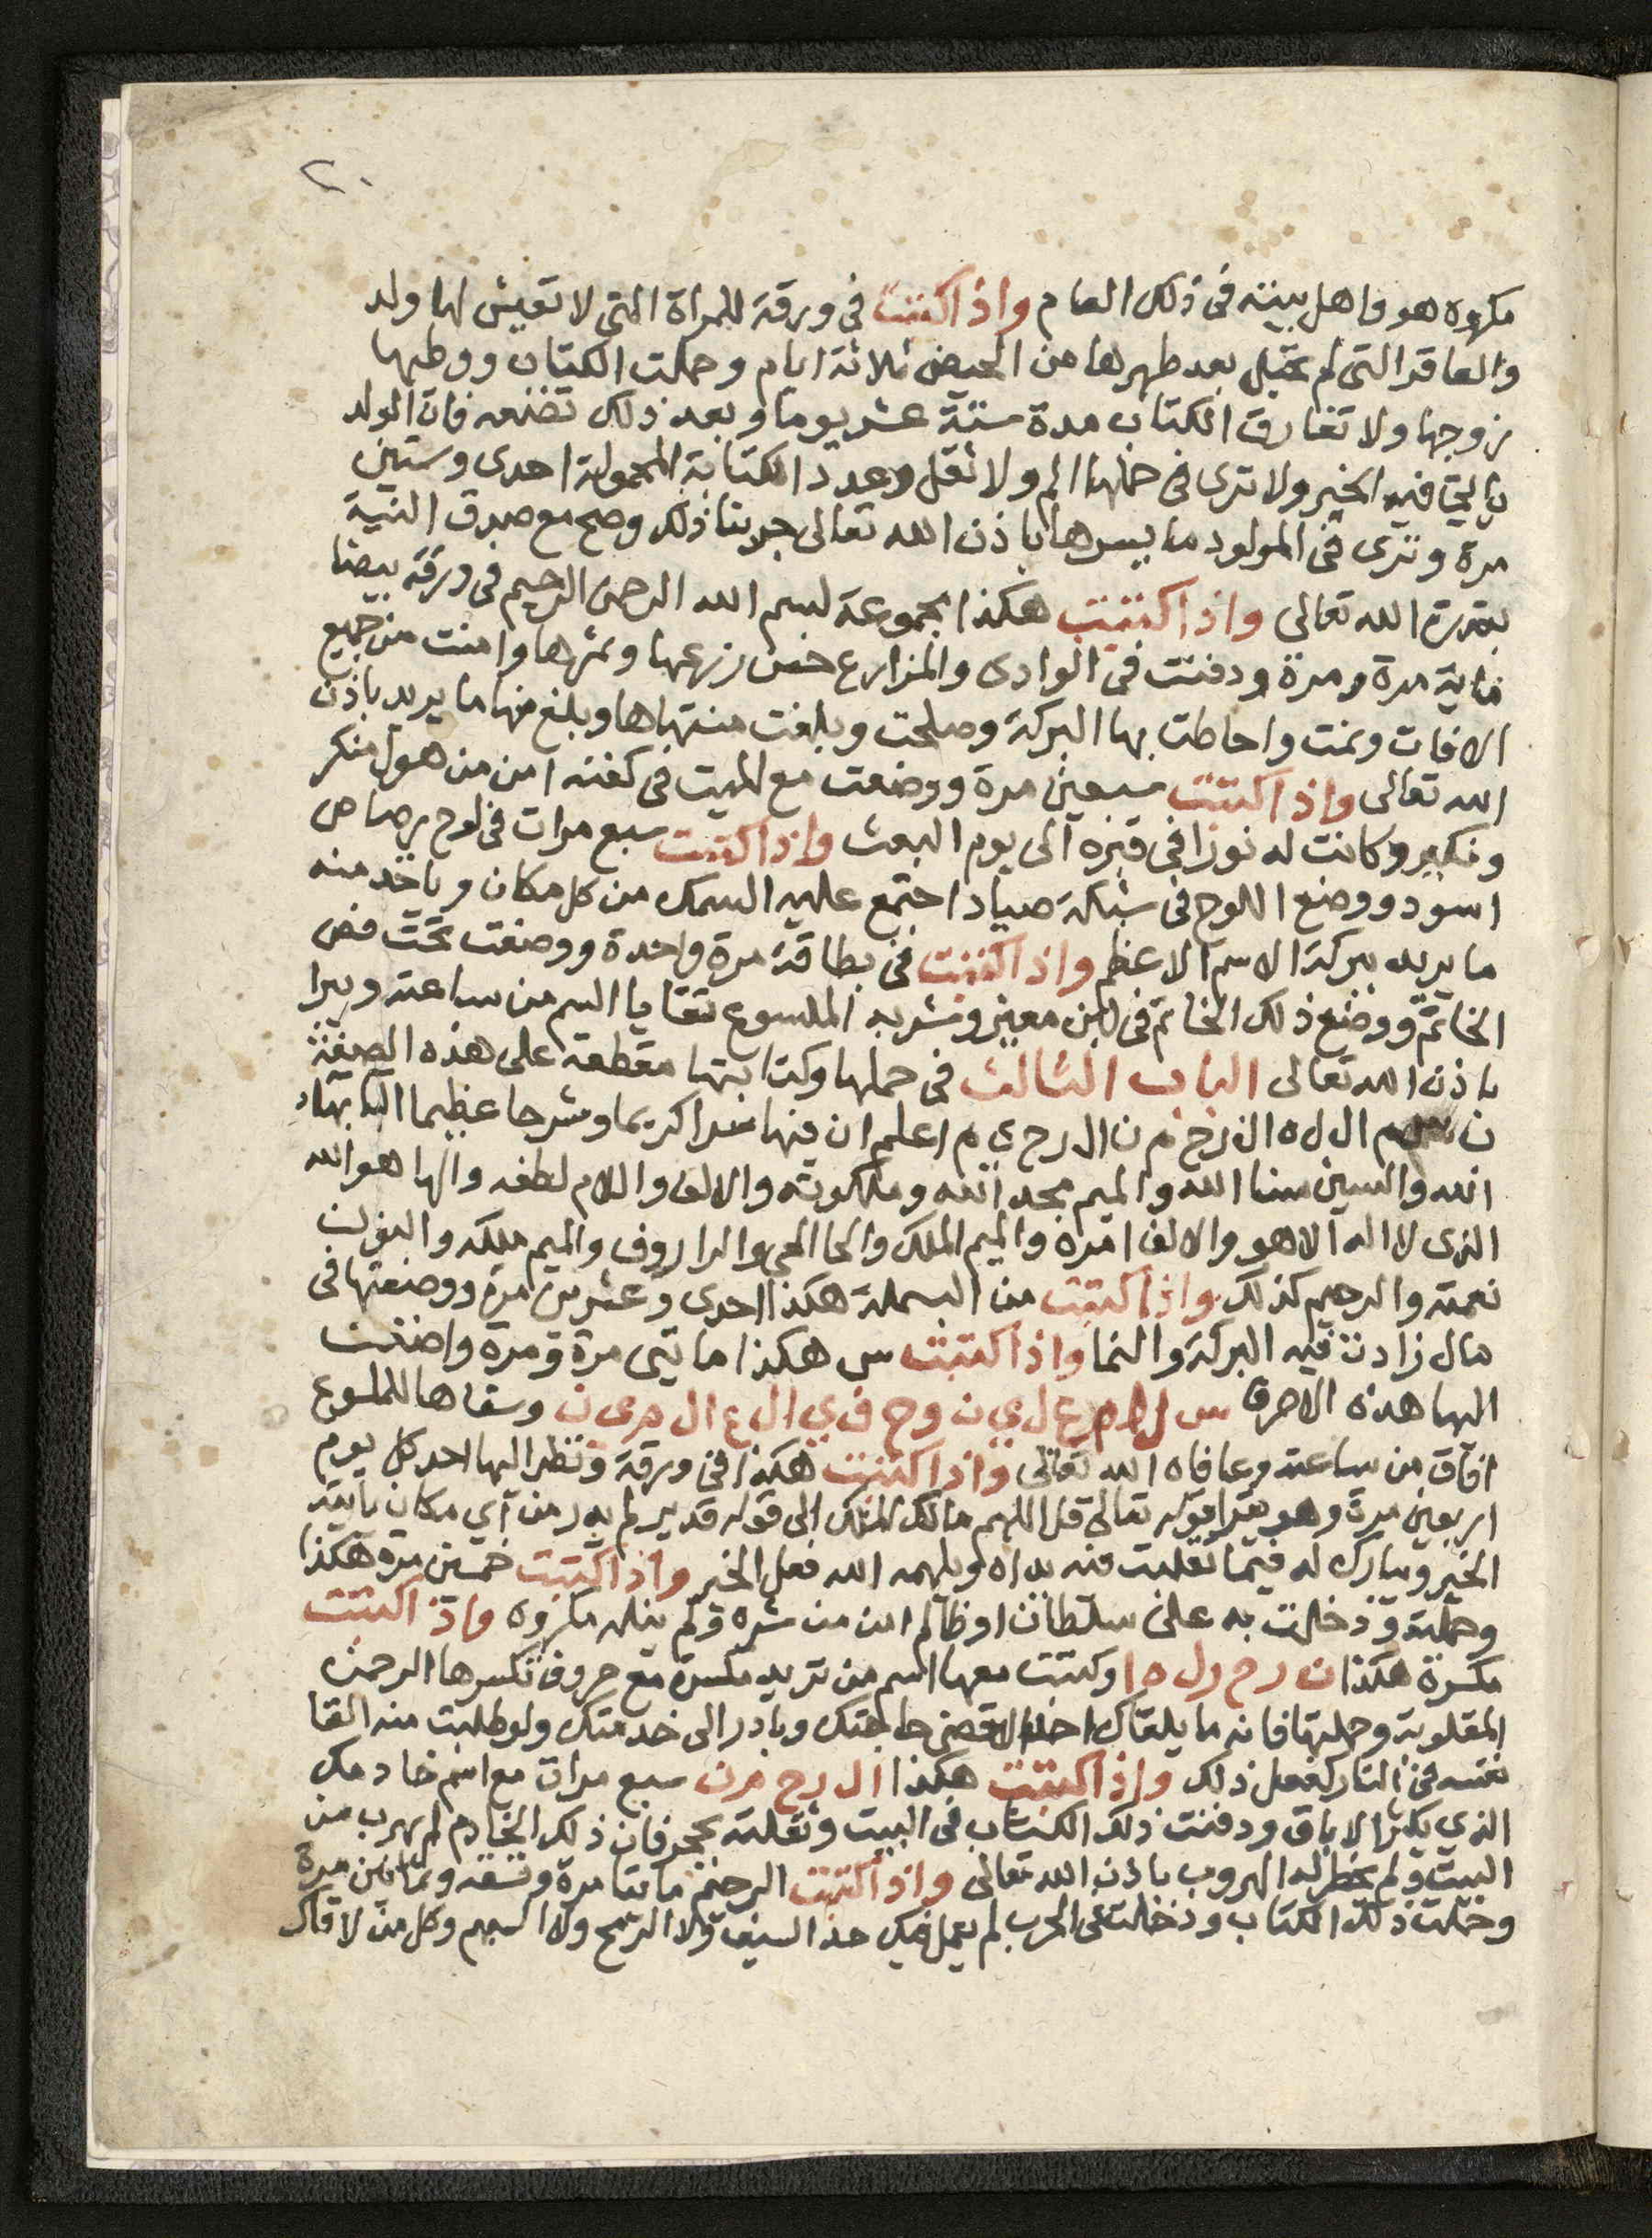 ٢٠
مكروه هو واهل بيته فى ذلك العام واذا كتبت في ورقة للمراة التى لا تعيش لها ولد
والعاقر التى لم تحبل بعد طهرها من الحيض ثلاثة ايام وحملت الكتاب ووطيها
زوجها ولا تفارق الكتاب مدة ستة عشر يوما وبعد ذلك تضعه فان الولد
فيه الخير ولا ترى فى حملها الم ولا ثقل وعدد الكتابة المحمولة احدى وستين
مرة وترى فى المولود ما يسرها باذن الله تعالى جربنا ذلك وصح مع صدق النية
بقدرة الله تعالى واذا كتبت هكذا مجموعة بسم الله الرحمن الرحيم فى ورقة بيضا
ماية مرة ومرة ودفنت في الوادى والمزارع حسن زرعها وثمرها وامنت من جميع
الافات ونمت واحاطت بها البركة وصلحت وبلغت منتهاها وبلغ منها ما يريد باذن
الله تعالى واذا كتبت سبعين مرة ووضعت مع الميت فى كفنه امن من هول منكر
ونكير وكانت له نورا فى قبره الى يوم البعث واذا كتبت سبع مرات فى لوح رصاص
اسود ووضع اللوح فى شبكة صياد اجتمع عليه السمك من كل مكان وياخد منه
ما يريد ببركة الاسم الاعظم واذا كتبت فى بطاقة مرة واحدة ووضعت تحت فص
الخاتم ووضع ذلك الخاتم فى لبن معيز وشربه الملسوع تقايا السم من ساعته ويبرا
باذن الله تعالى الباب الثالث فى حملها وكتابتها مقطعة على هذه الصفة
ال ل ه ال رح م ن ال رح ى م اعلم ان فيها سرا كريما وشرحا عظيما البا بهاء
الله والسين سنا الله والميم مجد الله وملكوته والالف واللام لطفه والها هو الله
الذى لا اله الا هو والالف امره والميم الملك والحا الحي والرا روف والميم ملكه والنون
نعمته والرحيم كذلك واذا كتبت من البسملة هكذا احدى وعشرين مرة ووضعتها فى
مال زادت فيه البركة والنما واذا كتبت س هكذا مايتى مرة ومرة واضفت
اليها هذه الاحرف س ل ا م ع ل ي ن وح ف ي ال ع ال م ى ن وسقاها للملسوع
افاق من ساعته وعافاه الله تعالى واذا كتبت هكذا فى ورقة ونظر اليها احد كل يوم
اربعين مرة وهو يقرا قوله تعالى قل اللهم مالك الملك الى قوله قدير لم يدر من أي مكان ياتيه
الخير ويبارك له فيما تقلبت فيه يداه ويلهمه الله فعل الخير واذا كتبت خمسين مرة هكذا
وحملته ودخلت به على سلطان او ظالم امن من شره ولم ينله مكروه واذا كتبت
مكسرة هكذا ن رح رل ه ا وكتبت معها اسم من تريد مكسرة مع حروف تكسرها الرحمن
المقلوبة وحملتها فانه ما يلقاك احد الا قضى حاجتك وبادر الى خدمتك ولو طلبت منه القا
نفسه فى النار لفعل ذلك واذا كتبت هكذا ال رح م ن سبع مرات مع اسم خادمك
الذي يكثر الاباق ودفنت ذلك الكتاب فى البيت وثقلته بحجر فان ذلك الخادم لم يهرب من
البيت ولم يخطر له الهروب باذن الله تعالى واذا كتبت الرحمن مايتا مرة وتسعه وثمانين مرة
وحملت ذلك الكتاب ودخلت فى الحرب لم يعمل فيك حد السيف ولا الرمح ولا السهم وكل من لاقاك